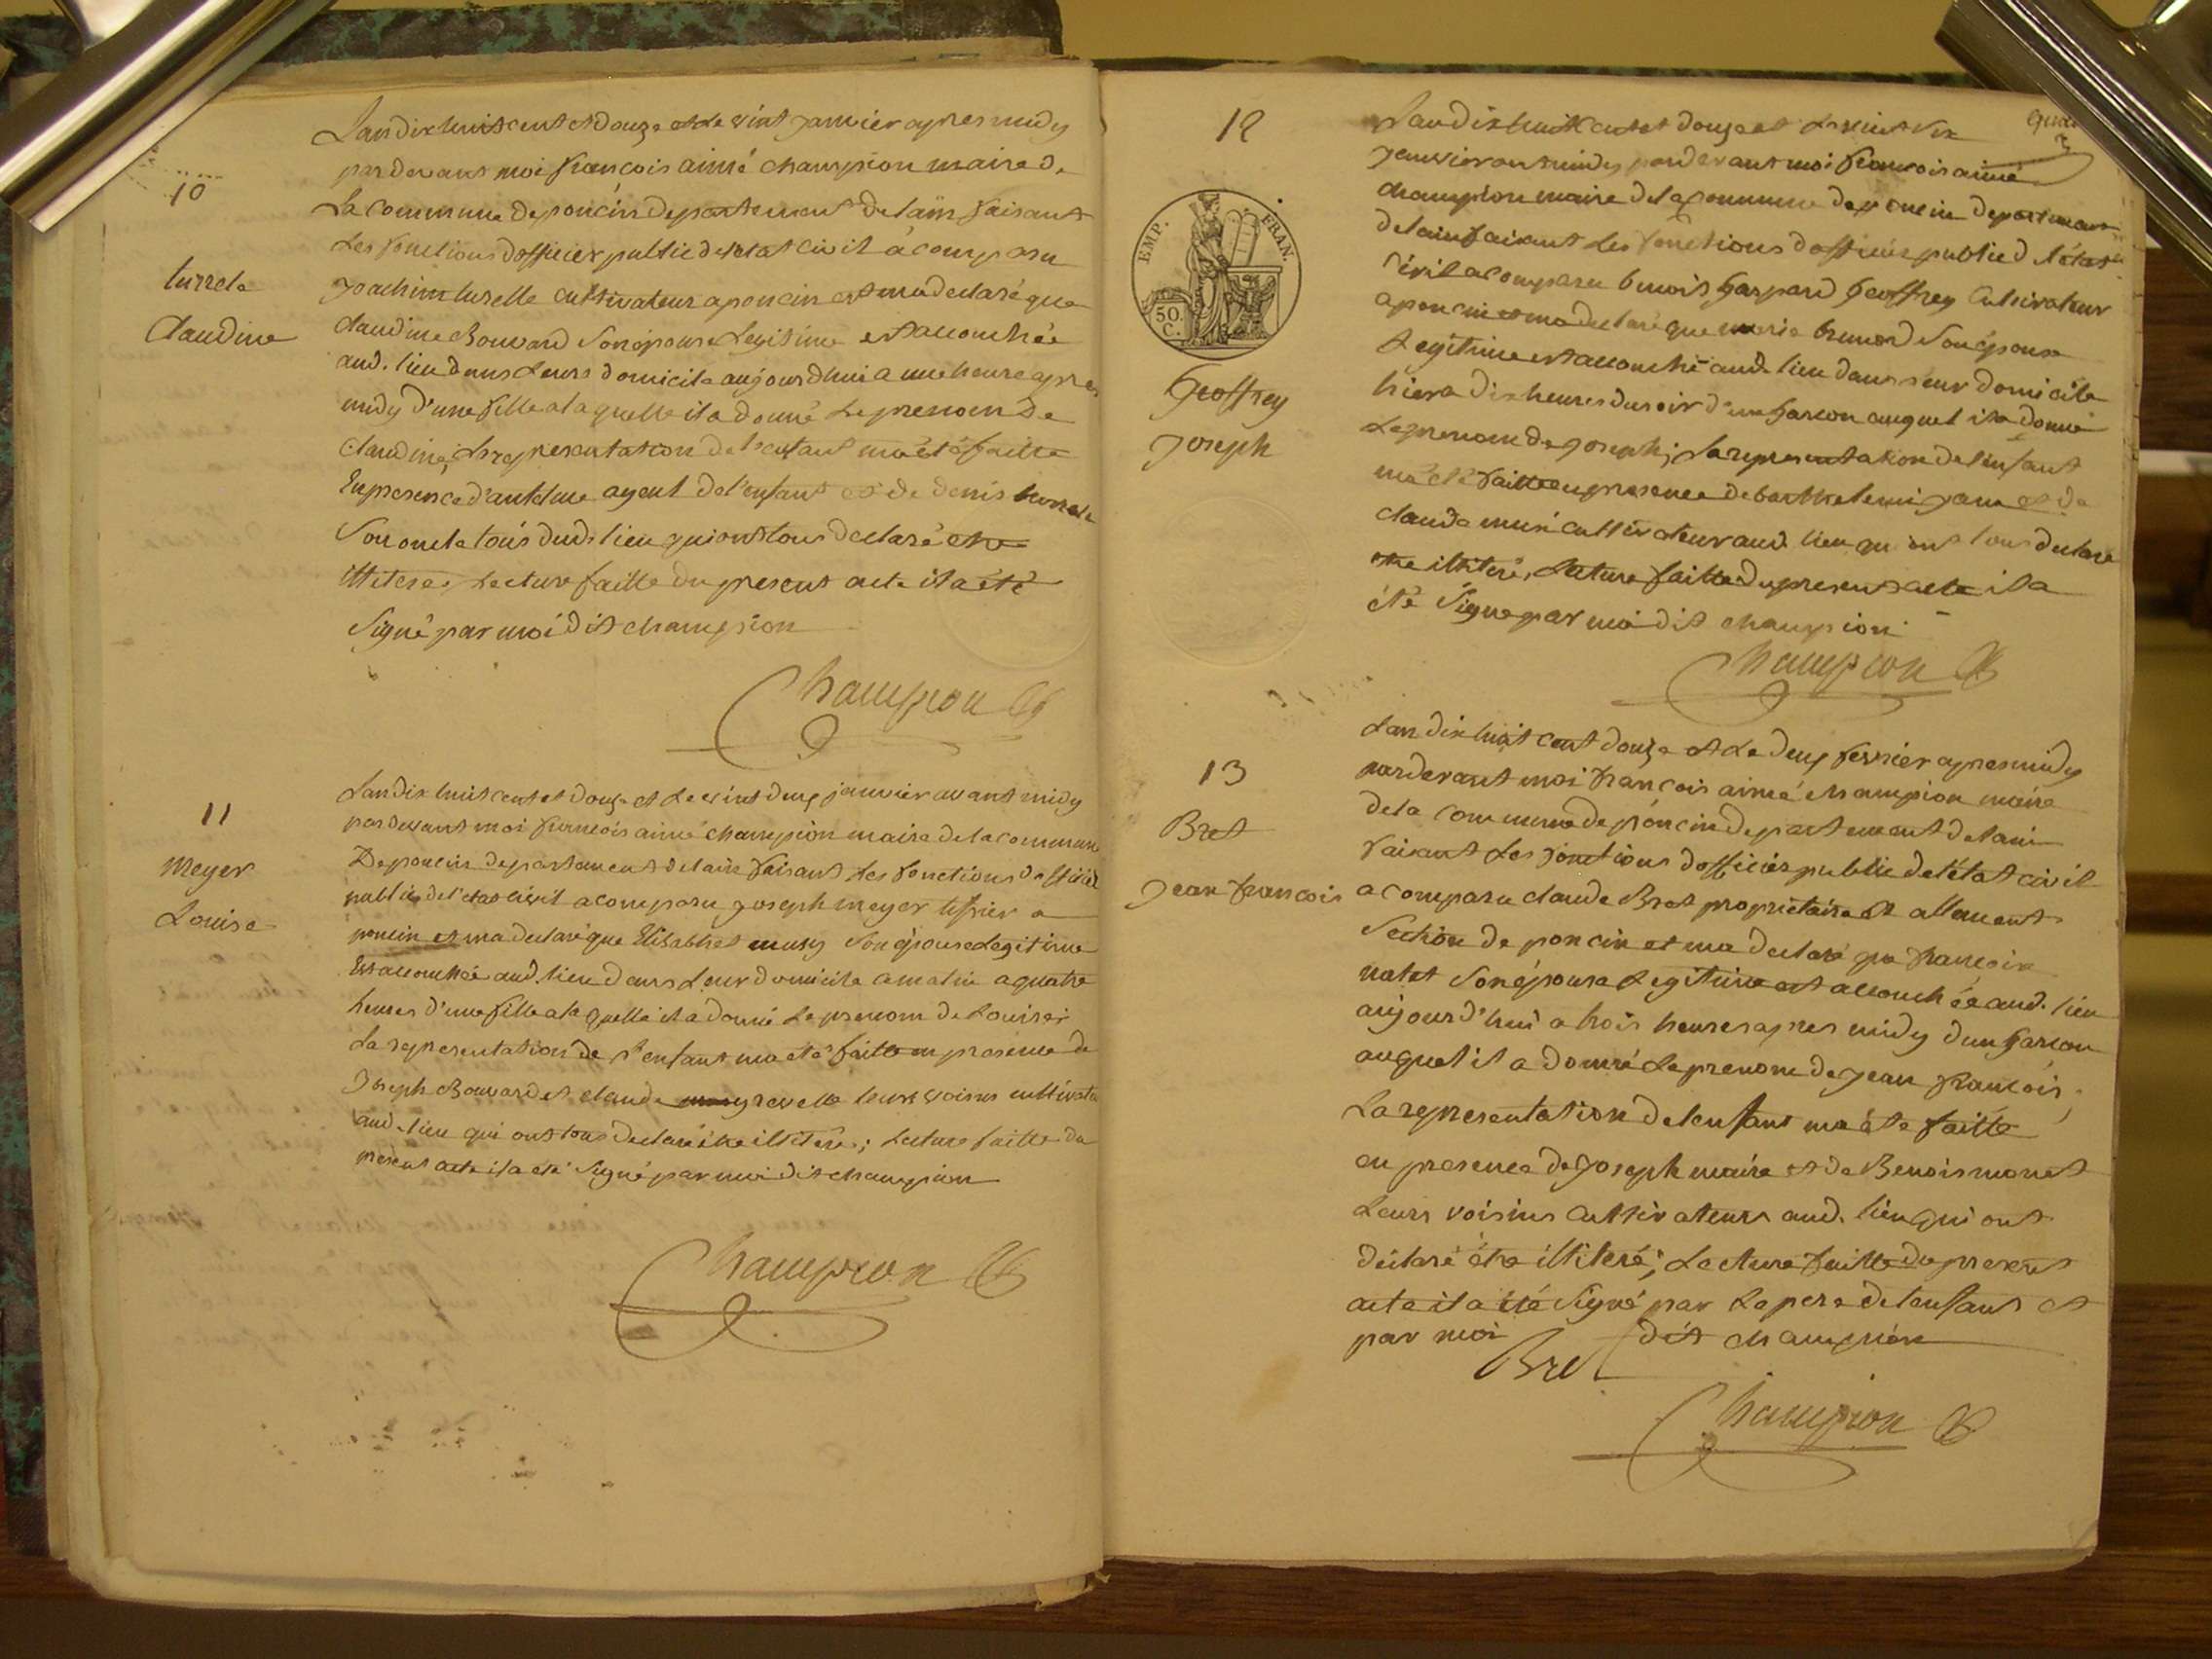 10
turrele
Claudine
Lan dix huit cent et douze et le vint janvier apres midy
par devant moi françois aimé champion maire de
La commune de poncin departement de lain faisant
Les fonctions dofficier public de letat civil à comparu
joachim turelle cultivateur a poncin et ma declaré que
claudine Bouvard son épouse Legitime est accouchée
aud. lieu dans Leurs domicile aujourdhui a une heure apres
midy d'une fille a laquelle il a donné Le prenom de
claudine, La representation de l'enfant ma été faitte
En presence d'antelme ayeul de l'enfant et de denis turrele
Son oncle tous dud. lieu qui ont tous declaré etre
illiteré, Lecture faitte du present acte il a été
Signé par moi dit champion
Champion
11
meyer
Louise
Lan dix huit cent et douze et Le vint deux janvier avant midy
par devant moi francois aimé champion maire de la commune
De poncin departement de lain faisant Les fonctions dofficier
public de l'etat civil a comparu joseph meyer
poncin et ma declaré que Elisabthet musy son épouse Legitime
Est accouchée aud. lieu dans Leur domicile a matin a quatre
heures d'une fille a la quelle il a donné Le prenom de Louise;
La representation de l'enfant ma été faitte en presence de
Joseph Bouvard et claude grevelle leurs voisins cultivateurs
aud. lieu qui ont tous declaré être illiteré; Lecture faitte du
present acte il a été Signé par moi dit champion
Champion
12
EMP. FRAN.
50. C.
Geoffrey
Joseph
Lan dix huit cent et douze et Le vint six
janvier avant midy par devant moi francois aimé
champion maire de la commune de poncin departement
de lain faisant Les fonctions dofficier public de l'état
civil a comparu benois gaspard Geoffrey Cultivateur
a poncin et ma declaré que marie brunod Son épouse
Legitime est accouchée aud. lieu dans leur domicile
hier a dix heures du soir d'un garcon auquel il a donné
Le prenom de joseph; La representation de l'enfant
ma été faitte en presence de barthelemi jame et de
claude muri cultivateur aud. lieu qui ont tous declaré
etre illiteré, Lecture faitte du present acte il a
été Signé par moi dit champion
Champion
13
Bret
jean francois
Lan dix huit cent douze et Le deux fevrier apres midy
par devant moi francois aimé champion maire
de la commune de poncin departement de lain
faisant Les fonctions dofficier public de l'état civil
a comparu claude Bret propriétaire et allement
Section de poncin et ma declaré que francoise
natet Son épouse Legitime est accouchée aud. lieu
aujourd'hui a trois heures apres midy d'un garcon
auquel il a donné Le prenom de jean francois;
La representation de lenfant ma été faitte
en presence de joseph maire et de Benois monet
Leurs voisins cultivateurs aud. lieu qui ont
déclaré être illiteré; Lecture faitte du present
acte il a été Signé par Le pere de lenfant et
par moi dit champion
Bret
Champion